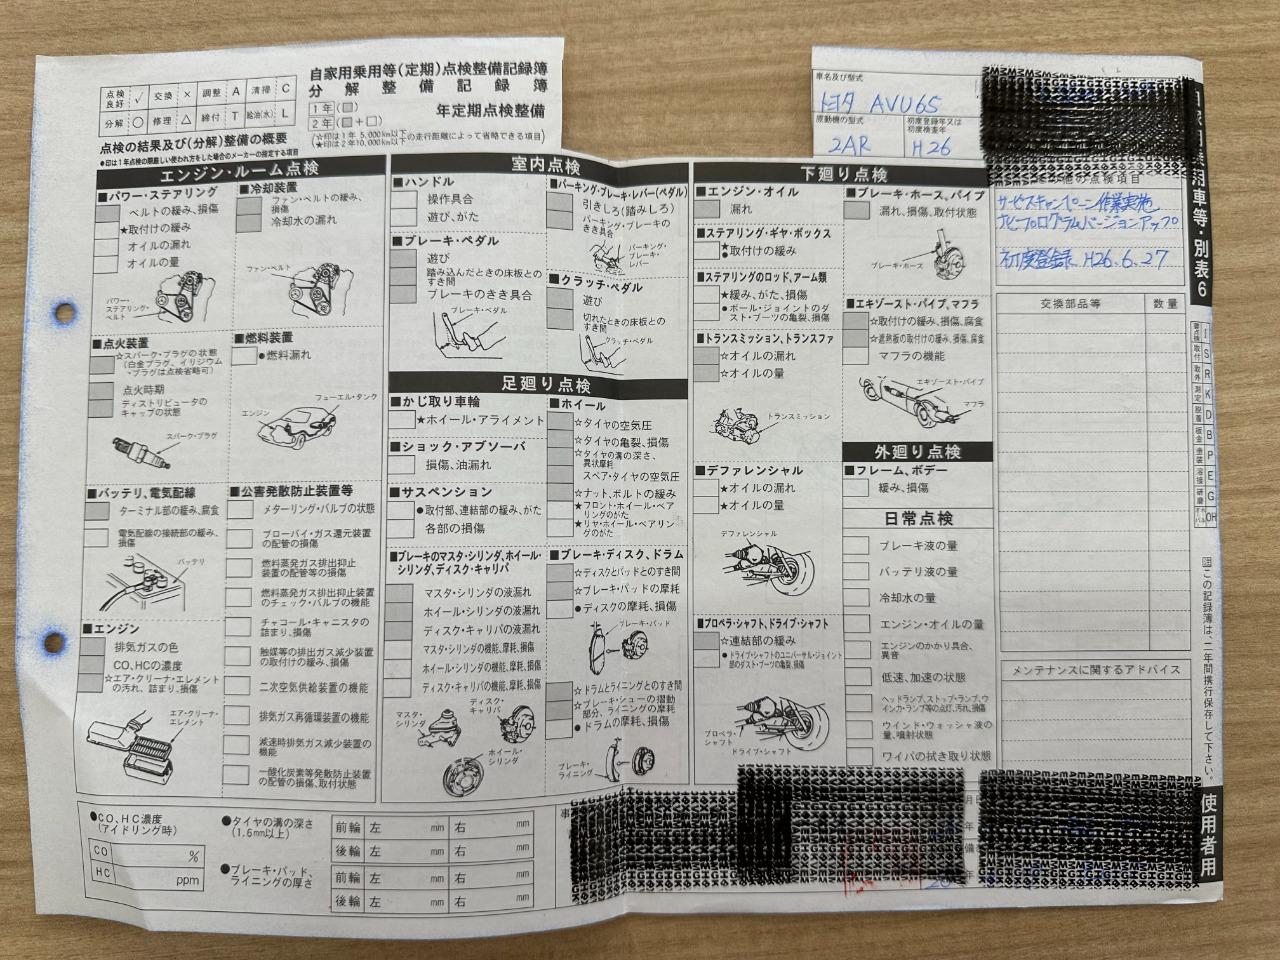 自家用乗用等(定期)点検整備記録簿
分解整備記録簿
1年(□)
2年(□+□)
年定期点検整備
(☆印は1年 5,000km以下
★印は2年10,000km以下の走行距離によって省略できる項目)
点検良好 ✓ 交換 × 調整 A 清掃 C
分解 ○ 修理 △ 締付 T 給油(水) L
点検の結果及び(分解)整備の概要
●印は1年点検の限厳しい使われ方をした場合のメーカーの指定する項目
車名及び型式
トヨタ AVU65
原動機の型式
2AR
初度登録年又は初度検査年
H26
エンジン・ルーム点検
■パワー・ステアリング
ベルトの緩み、損傷
★取付けの緩み
オイルの漏れ
オイルの量
パワー・ステアリング・ベルト
■点火装置
☆スパーク・プラグの状態
(白金プラグ、イリジウム・プラグは点検省略可)
点火時期
ディストリビュータのキャップの状態
スパーク・プラグ
■バッテリ、電気配線
ターミナル部の緩み、腐食
電気配線の接続部の緩み、損傷
バッテリ
■エンジン
排気ガスの色
CO、HCの濃度
☆エア・クリーナ・エレメントの汚れ、詰まり、損傷
エア・クリーナ・エレメント
■冷却装置
ファン・ベルトの緩み、損傷
冷却水の漏れ
ファン・ベルト
■燃料装置
●燃料漏れ
フューエル・タンク
エンジン
■公害発散防止装置等
メターリング・バルブの状態
ブローバイ・ガス還元装置の配管の損傷
燃料蒸発ガス排出抑止装置の配管等の損傷
燃料蒸発ガス排出抑止装置のチェック・バルブの機能
チャコール・キャニスタの詰まり、損傷
触媒等の排出ガス減少装置の取付けの緩み、損傷
二次空気供給装置の機能
排気ガス再循環装置の機能
減速時排気ガス減少装置の機能
一酸化炭素等発散防止装置の配管の損傷、取付状態
室内点検
■ハンドル
操作具合
遊び、がた
■ブレーキ・ペダル
遊び
踏み込んだときの床板とのすき間
ブレーキのきき具合
ブレーキ・ペダル
■パーキング・ブレーキ・レバー(ペダル)
引きしろ(踏みしろ)
パーキング・ブレーキのきき具合
パーキング・ブレーキ・レバー
■クラッチ・ペダル
遊び
切れたときの床板とのすき間
クラッチ・ペダル
足廻り点検
■かじ取り車輪
★ホイール・アライメント
■ショック・アブソーバ
損傷、油漏れ
■サスペンション
●取付部、連結部の緩み、がた
各部の損傷
■ブレーキのマスタ・シリンダ、ホイール・シリンダ、ディスク・キャリパ
マスタ・シリンダの液漏れ
ホイール・シリンダの液漏れ
ディスク・キャリパの液漏れ
マスタ・シリンダの機能、摩耗、損傷
ホイール・シリンダの機能、摩耗、損傷
ディスク・キャリパの機能、摩耗、損傷
マスタ・シリンダ
ディスク・キャリパ
ホイール・シリンダ
■ホイール
☆タイヤの空気圧
☆タイヤの亀裂、損傷
☆タイヤの溝の深さ、異状摩耗
スペア・タイヤの空気圧
☆ナット、ボルトの緩み
★フロント・ホイール・ベアリングのがた
★リヤ・ホイール・ベアリングのがた
■ブレーキ・ディスク、ドラム
☆ディスクとパッドとのすき間
☆ブレーキ・パッドの摩耗
●ディスクの摩耗、損傷
ブレーキ・パッド
☆ドラムとライニングとのすき間
☆ブレーキ・シューの摺動部分、ライニングの摩耗
●ドラムの摩耗、損傷
ブレーキ・ライニング
下廻り点検
■エンジン・オイル
漏れ
■ステアリング・ギヤ・ボックス
★●取付けの緩み
■ステアリングのロッド、アーム類
★緩み、がた、損傷
●ボール・ジョイントのダスト・ブーツの亀裂、損傷
■トランスミッション、トランスファ
☆オイルの漏れ
☆オイルの量
トランスミッション
■デファレンシャル
★オイルの漏れ
★オイルの量
デファレンシャル
■プロペラ・シャフト、ドライブ・シャフト
☆連結部の緩み
●ドライブ・シャフトのユニバーサル・ジョイント部のダスト・ブーツの亀裂、損傷
プロペラ・シャフト
ドライブ・シャフト
■ブレーキ・ホース、パイプ
漏れ、損傷、取付状態
ブレーキ・ホース
■エキゾースト・パイプ、マフラ
☆取付けの緩み、損傷、腐食
☆遮熱板の取付けの緩み、損傷、腐食
マフラの機能
エキゾースト・パイプ
マフラ
外廻り点検
■フレーム、ボデー
緩み、損傷
日常点検
ブレーキ液の量
バッテリ液の量
冷却水の量
エンジン・オイルの量
エンジンのかかり具合、異音
低速、加速の状態
ヘッドランプ、ストップ・ランプ、ウインカ・ランプ等の点灯、汚れ、損傷
ウインド・ウォッシャ液の量、噴射状態
ワイパの拭き取り状態
その他の点検項目
サービスキャンペーン作業実施
ナビプログラムバージョンアップ
初度登録 H26.6.27
交換部品等 数量
メンテナンスに関するアドバイス
用車等・別表6
I
取付 S
取外 R
測定 K
脱着 D
板金 B
塗装 P
溶接 E
研磨 G
オーバーホール OH
注この記録簿は、二年間携行保存して下さい。
使用者用
●CO、HC濃度(アイドリング時)
CO %
HC ppm
●タイヤの溝の深さ(1.6mm以上)
前輪 左 mm 右 mm
後輪 左 mm 右 mm
●ブレーキ・パッド、ライニングの厚さ
前輪 左 mm 右 mm
後輪 左 mm 右 mm